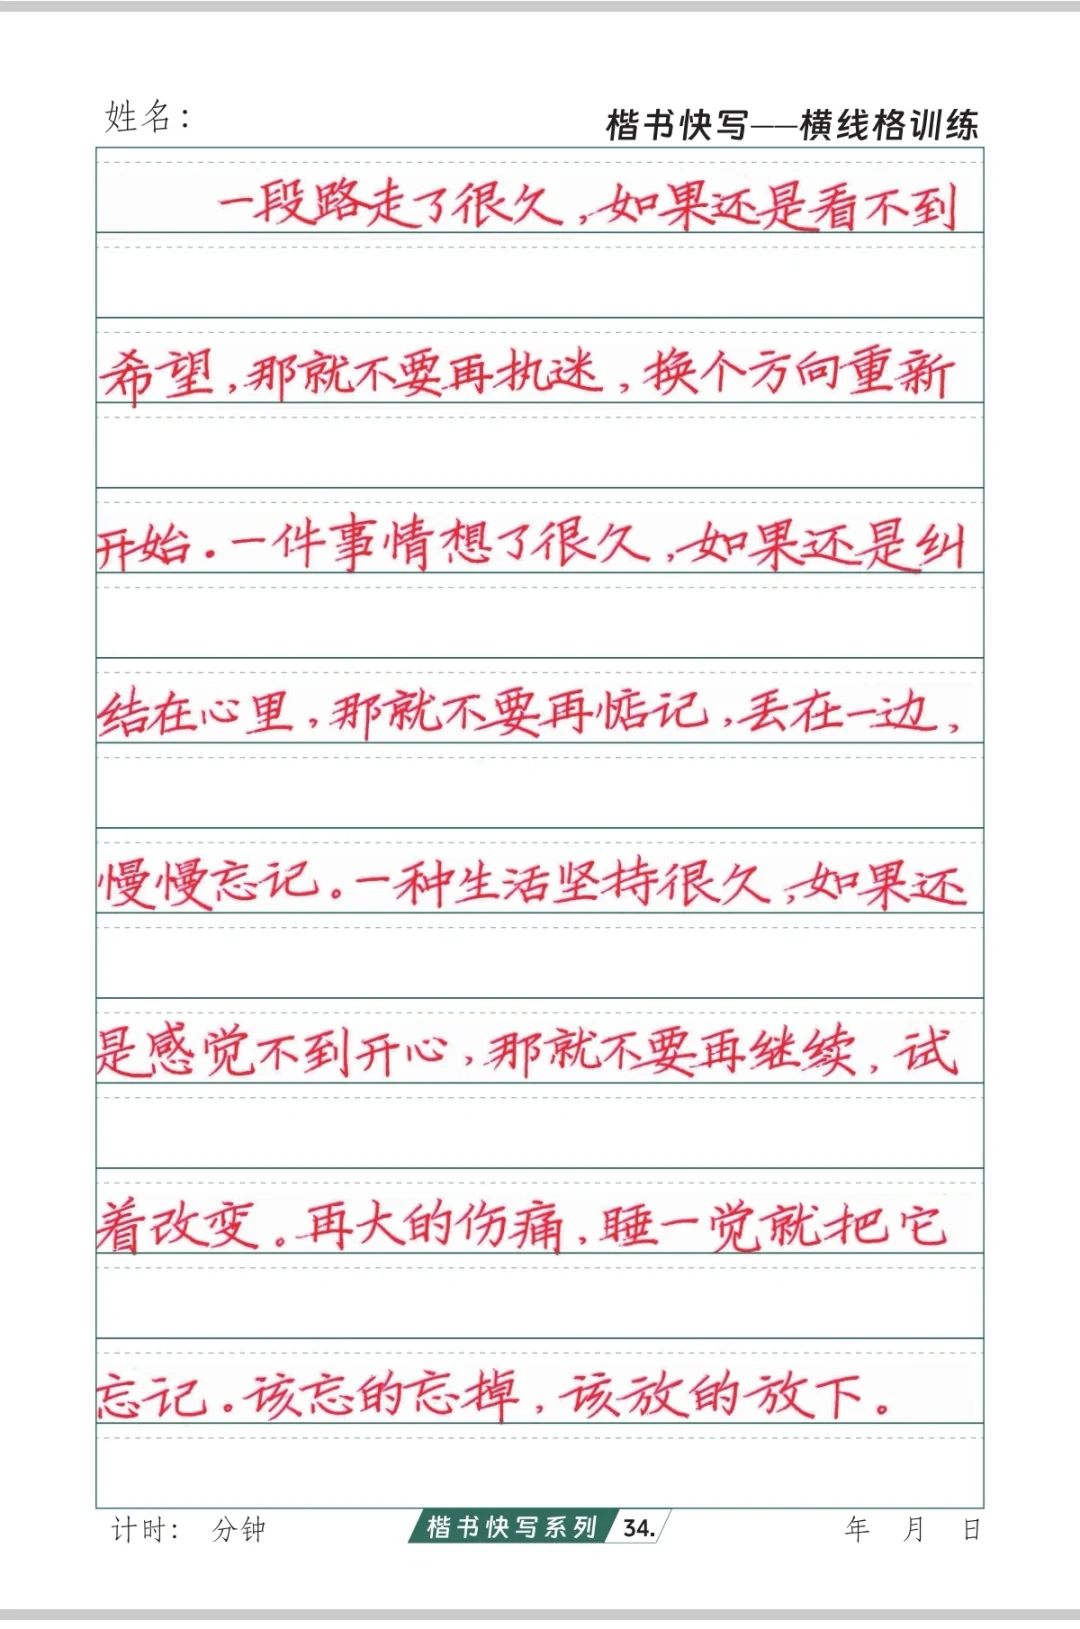 姓名：
楷书快写——横线格训练
一段路走了很久,如果还是看不到
希望,那就不要再执迷,换个方向重新
开始。一件事情想了很久,如果还是纠
结在心里,那就不要再惦记,丢在一边,
慢慢忘记。一种生活坚持很久,如果还
是感觉不到开心,那就不要再继续,试
着改变。再大的伤痛,睡一觉就把它
忘记。该忘的忘掉,该放的放下。
计时： 分钟 楷书快写系列 34. 年 月 日